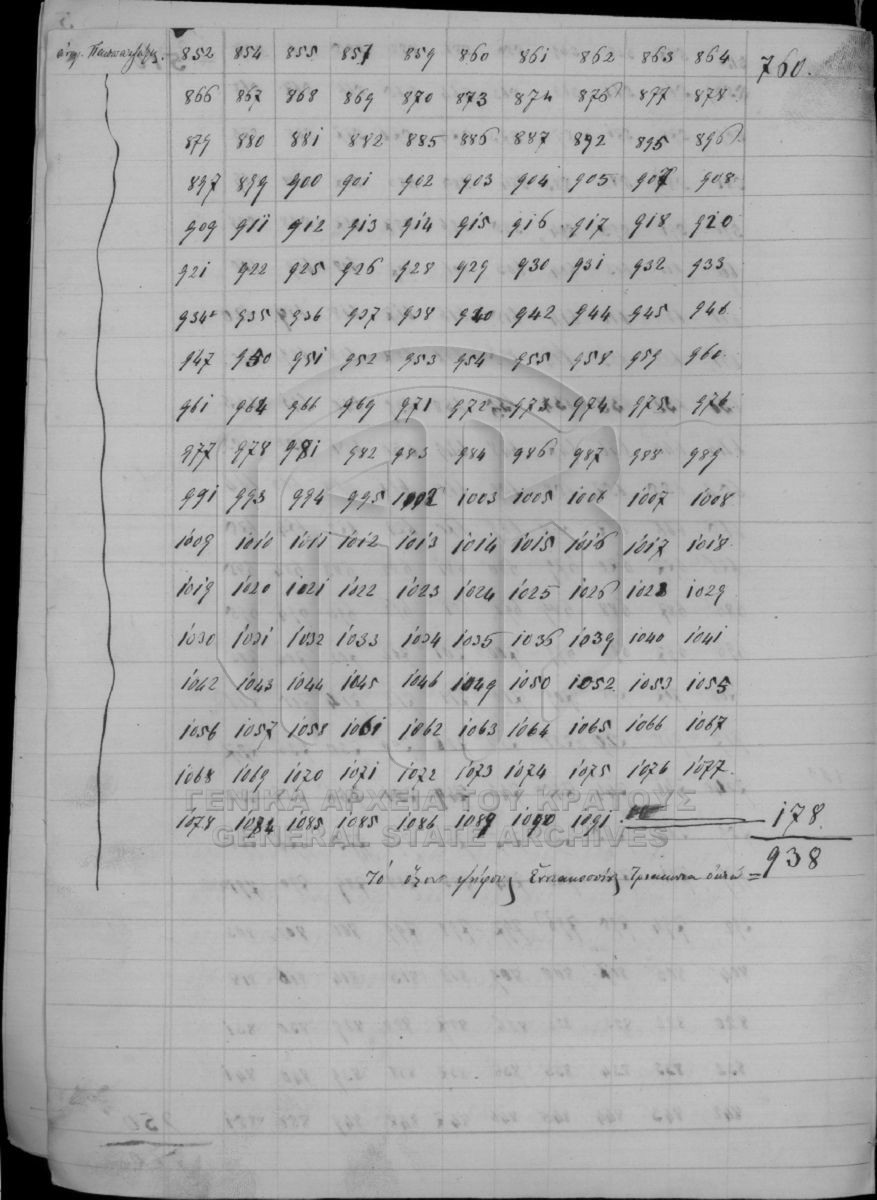 852 854 855 857 859 860 861 862 863 864 760.
866 867 868 869 870 873 874 876 877 878
879 880 881 882 885 886 887 892 895 896
897 899 900 901 902 903 904 905 907 908
909 911 912 913 914 915 916 917 918 920
921 922 925 926 928 929 930 931 932 933
934 935 936 937 938 940 942 944 945 946
947 950 951 952 953 954 955 958 959 960
961 964 966 969 971 972 973 974 975 976
977 978 981 982 983 984 986 987 988 989
991 993 994 995 1002 1003 1005 1006 1007 1008
1009 1010 1011 1012 1013 1014 1015 1016 1017 1018
1019 1020 1021 1022 1023 1024 1025 1026 1028 1029
1030 1031 1032 1033 1034 1035 1036 1039 1040 1041
1042 1043 1044 1045 1046 1049 1050 1052 1053 1055
1056 1057 1058 1061 1062 1063 1064 1065 1066 1067
1068 1069 1070 1071 1072 1073 1074 1075 1076 1077
ΓΕΝΙΚΑ ΑΡΧΕΙΑ ΤΟΥ ΚΡΑΤΟΥΣ
1078 1084 1085 1085 1086 1089 1090 1091 178
GENERAL STATE ARCHIVES
ψήφους Ἐννεακοσίους Τριάκοντα ὀκτώ = 938